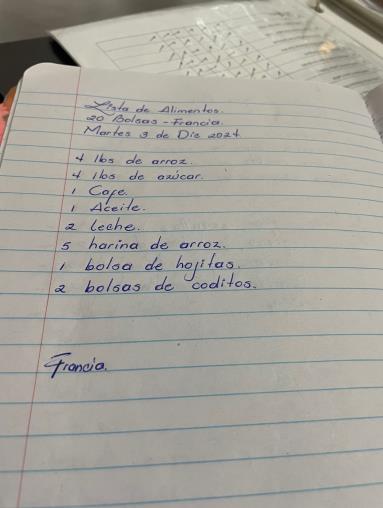 Lista de Alimentos.
20 Bolsas - Francia.
Martes 3 de Dic 2024.
4 lbs de arroz.
4 lbs de azúcar.
1 Cafe.
1 Aceite.
2 leche.
5 harina de arroz.
1 bolsa de hojitas.
2 bolsas de coditos.
Francia.